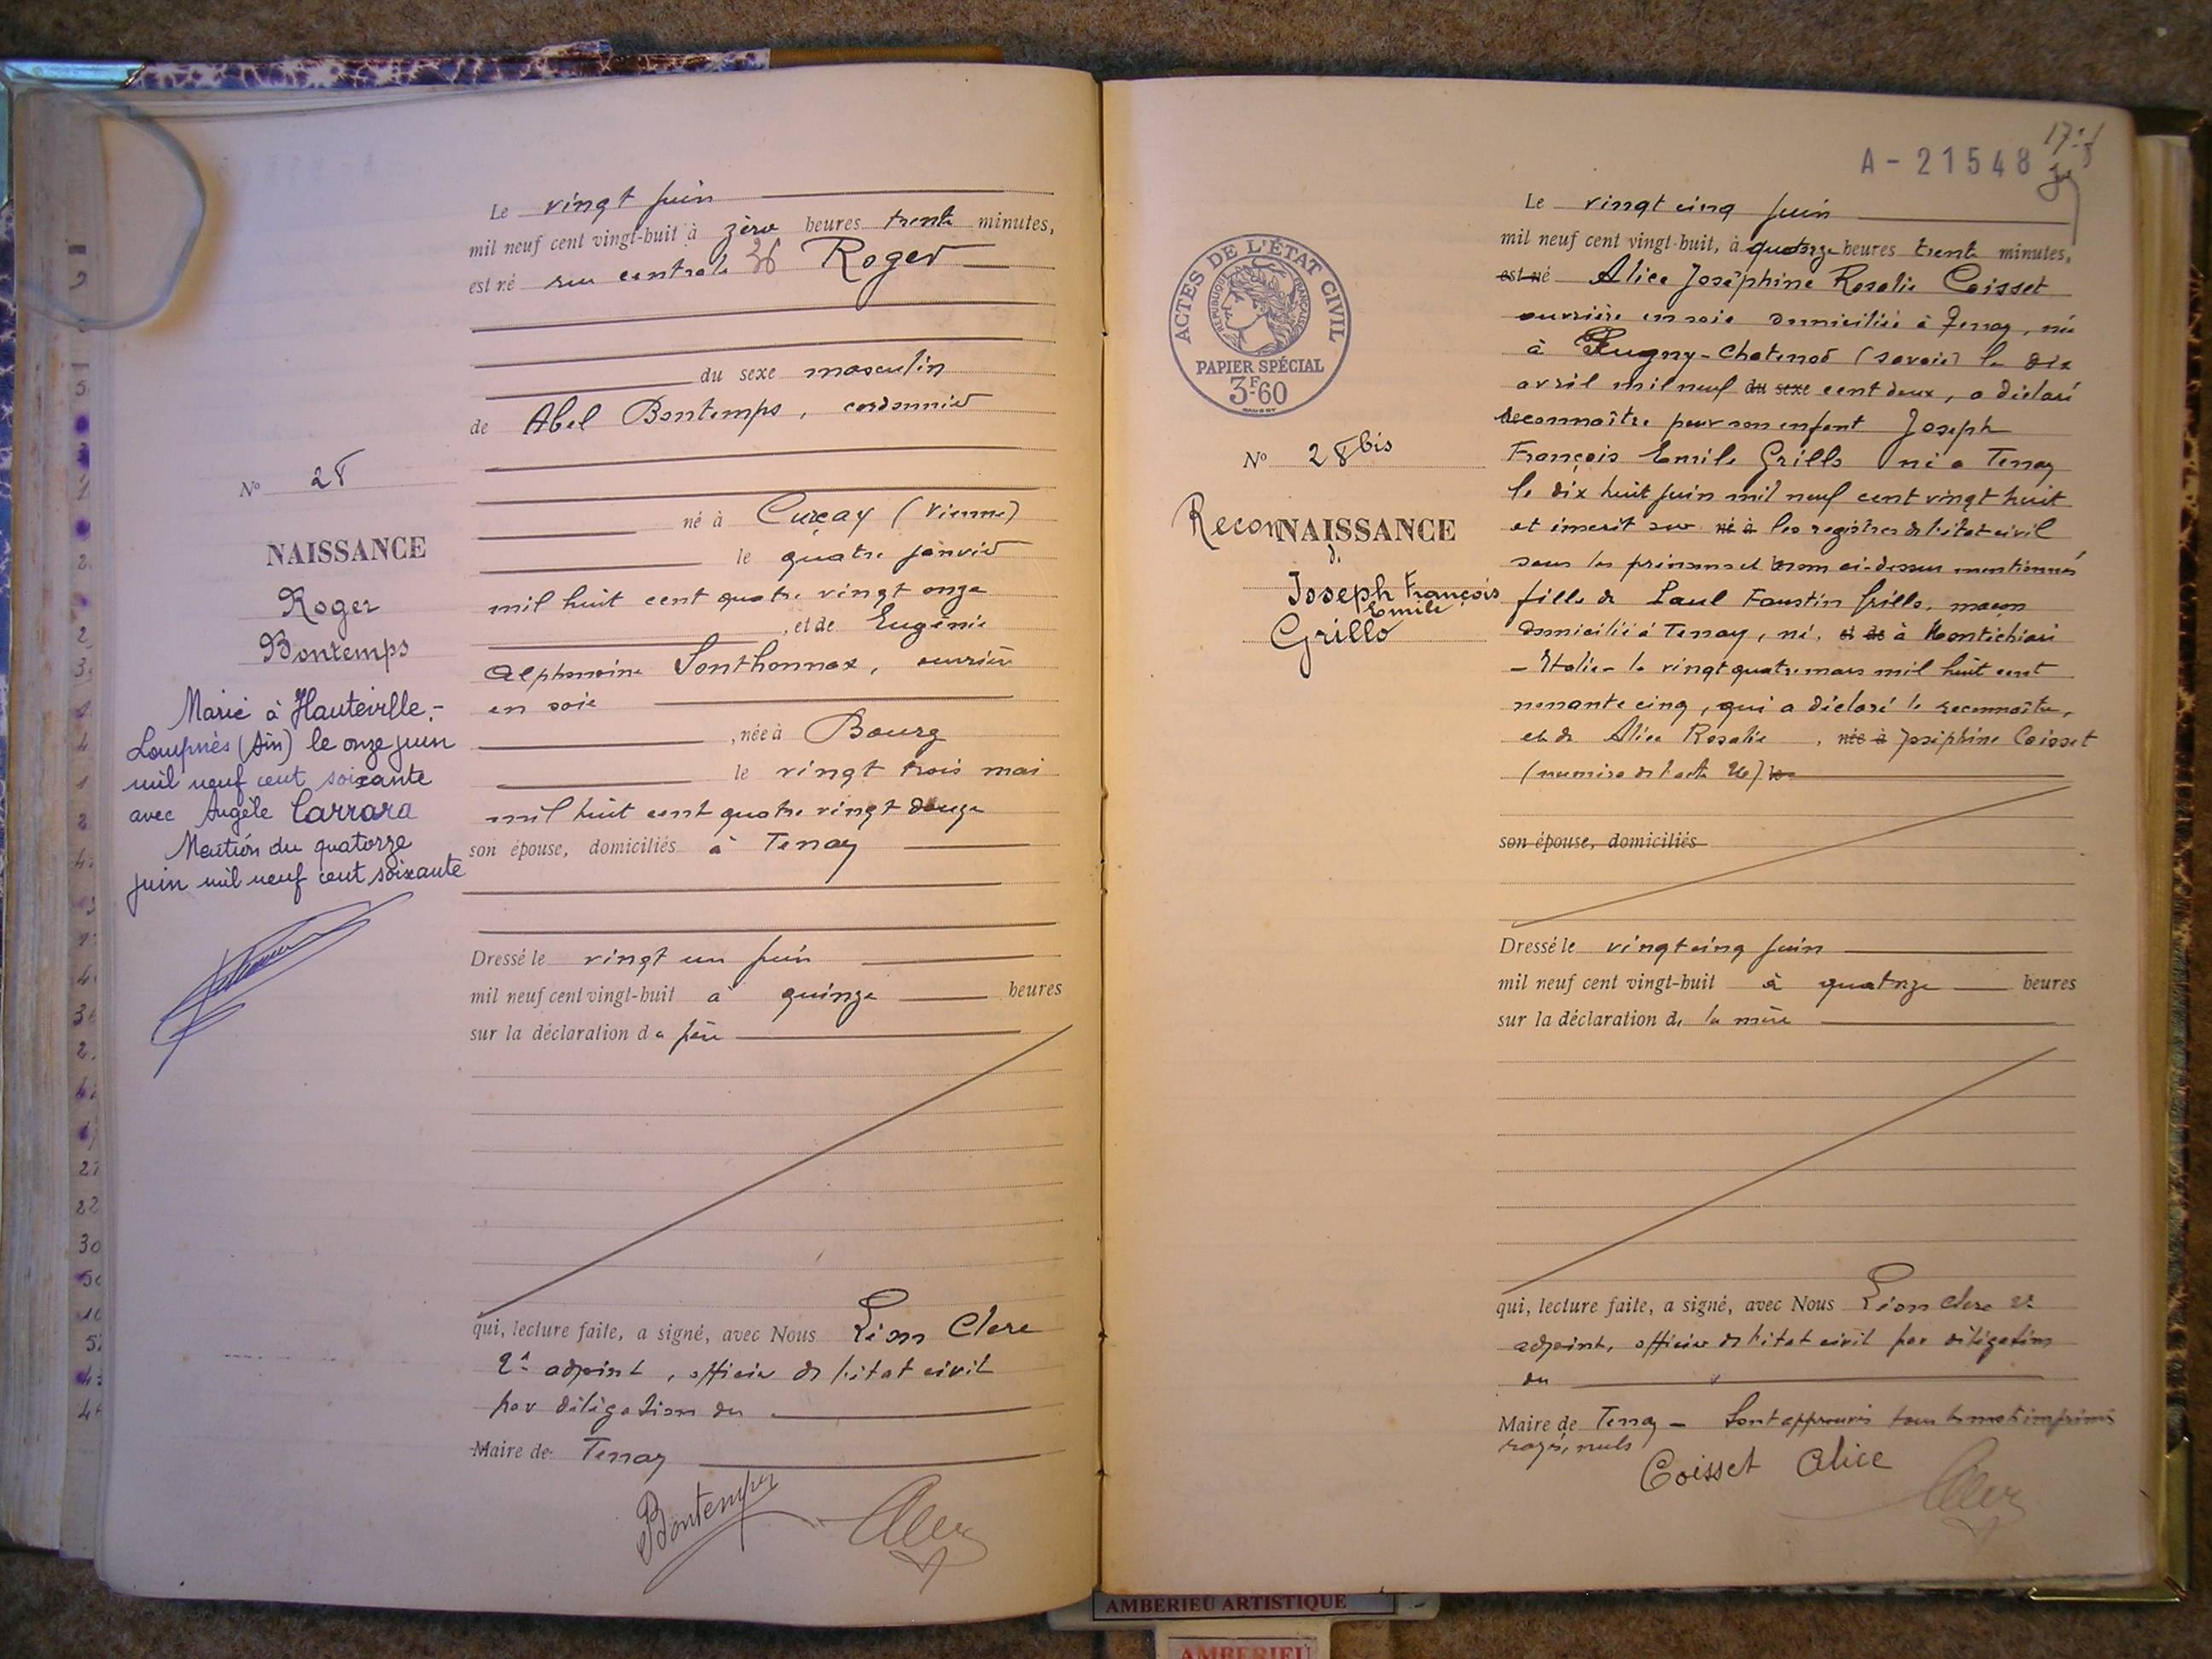 Le vingt juin
mil neuf cent vingt-huit à zéro heures trente minutes,
est né rue centrale 36 Roger
du sexe masculin
de Abel Bontemps, cordonnier
né à Curçay (Vienne)
le quatre janvier
mil huit cent quatre vingt onze
, et de Eugénie
Alphonsine Sonthonnax, ouvrière
en soie
, née à Bourg
le vingt trois mai
mil huit cent quatre vingt douze
son épouse, domiciliés à Tenay
Dressé le vingt un juin
mil neuf cent vingt-huit à quinze heures
sur la déclaration du père
qui, lecture faite, a signé, avec Nous Léon Clerc
2e adjoint, officier de l'état civil
par délégation du
Maire de Tenay
Bontemps
N° 28
NAISSANCE
Roger
Bontemps
Marié à Hauteville-
Lompnès (Ain) le onze juin
mil neuf cent soixante
avec Angèle Carrara
Mention du quatorze
juin mil neuf cent soixante
A-21548
ACTES DE L'ÉTAT CIVIL
RÉPUBLIQUE FRANÇAISE
PAPIER SPÉCIAL
3F60
N° 28 bis
ReconNAISSANCE
de
Joseph François
Emile
Grillo
Le vingt cinq juin
mil neuf cent vingt-huit, à quatorze heures trente minutes,
est né Alice Joséphine Rosalie Coisset
ouvrière en soie domiciliée à Tenay, née
à Pugny-Chatenod (Savoie) le dix
avril mil neuf du sexe cent deux, a déclaré
reconnaître pour son enfant Joseph
François Emile Grillo né à Tenay
le dix huit juin mil neuf cent vingt huit
et inscrit sur né à les registres de l'état civil
sous les prénoms et nom ci-dessus mentionnés
fils de Paul Faustin Grillo, maçon
domicilié à Tenay, né, et de à Montichiari
- Italie - le vingt quatre mars mil huit cent
nonante cinq, qui a déclaré le reconnaître,
et de Alice Rosalie , née à Joséphine Coisset
(numéro de l'acte 26) le
son épouse, domiciliés
Dressé le vingt cinq juin
mil neuf cent vingt-huit à quatorze heures
sur la déclaration de la mère
qui, lecture faite, a signé, avec Nous Léon Clerc 2e
adjoint, officier de l'état civil par délégation
du
Maire de Tenay - Sont approuvés tous les mots imprimés
rayés, nuls
Coisset Alice
AMBERIEU ARTISTIQUE
AMBERIEU